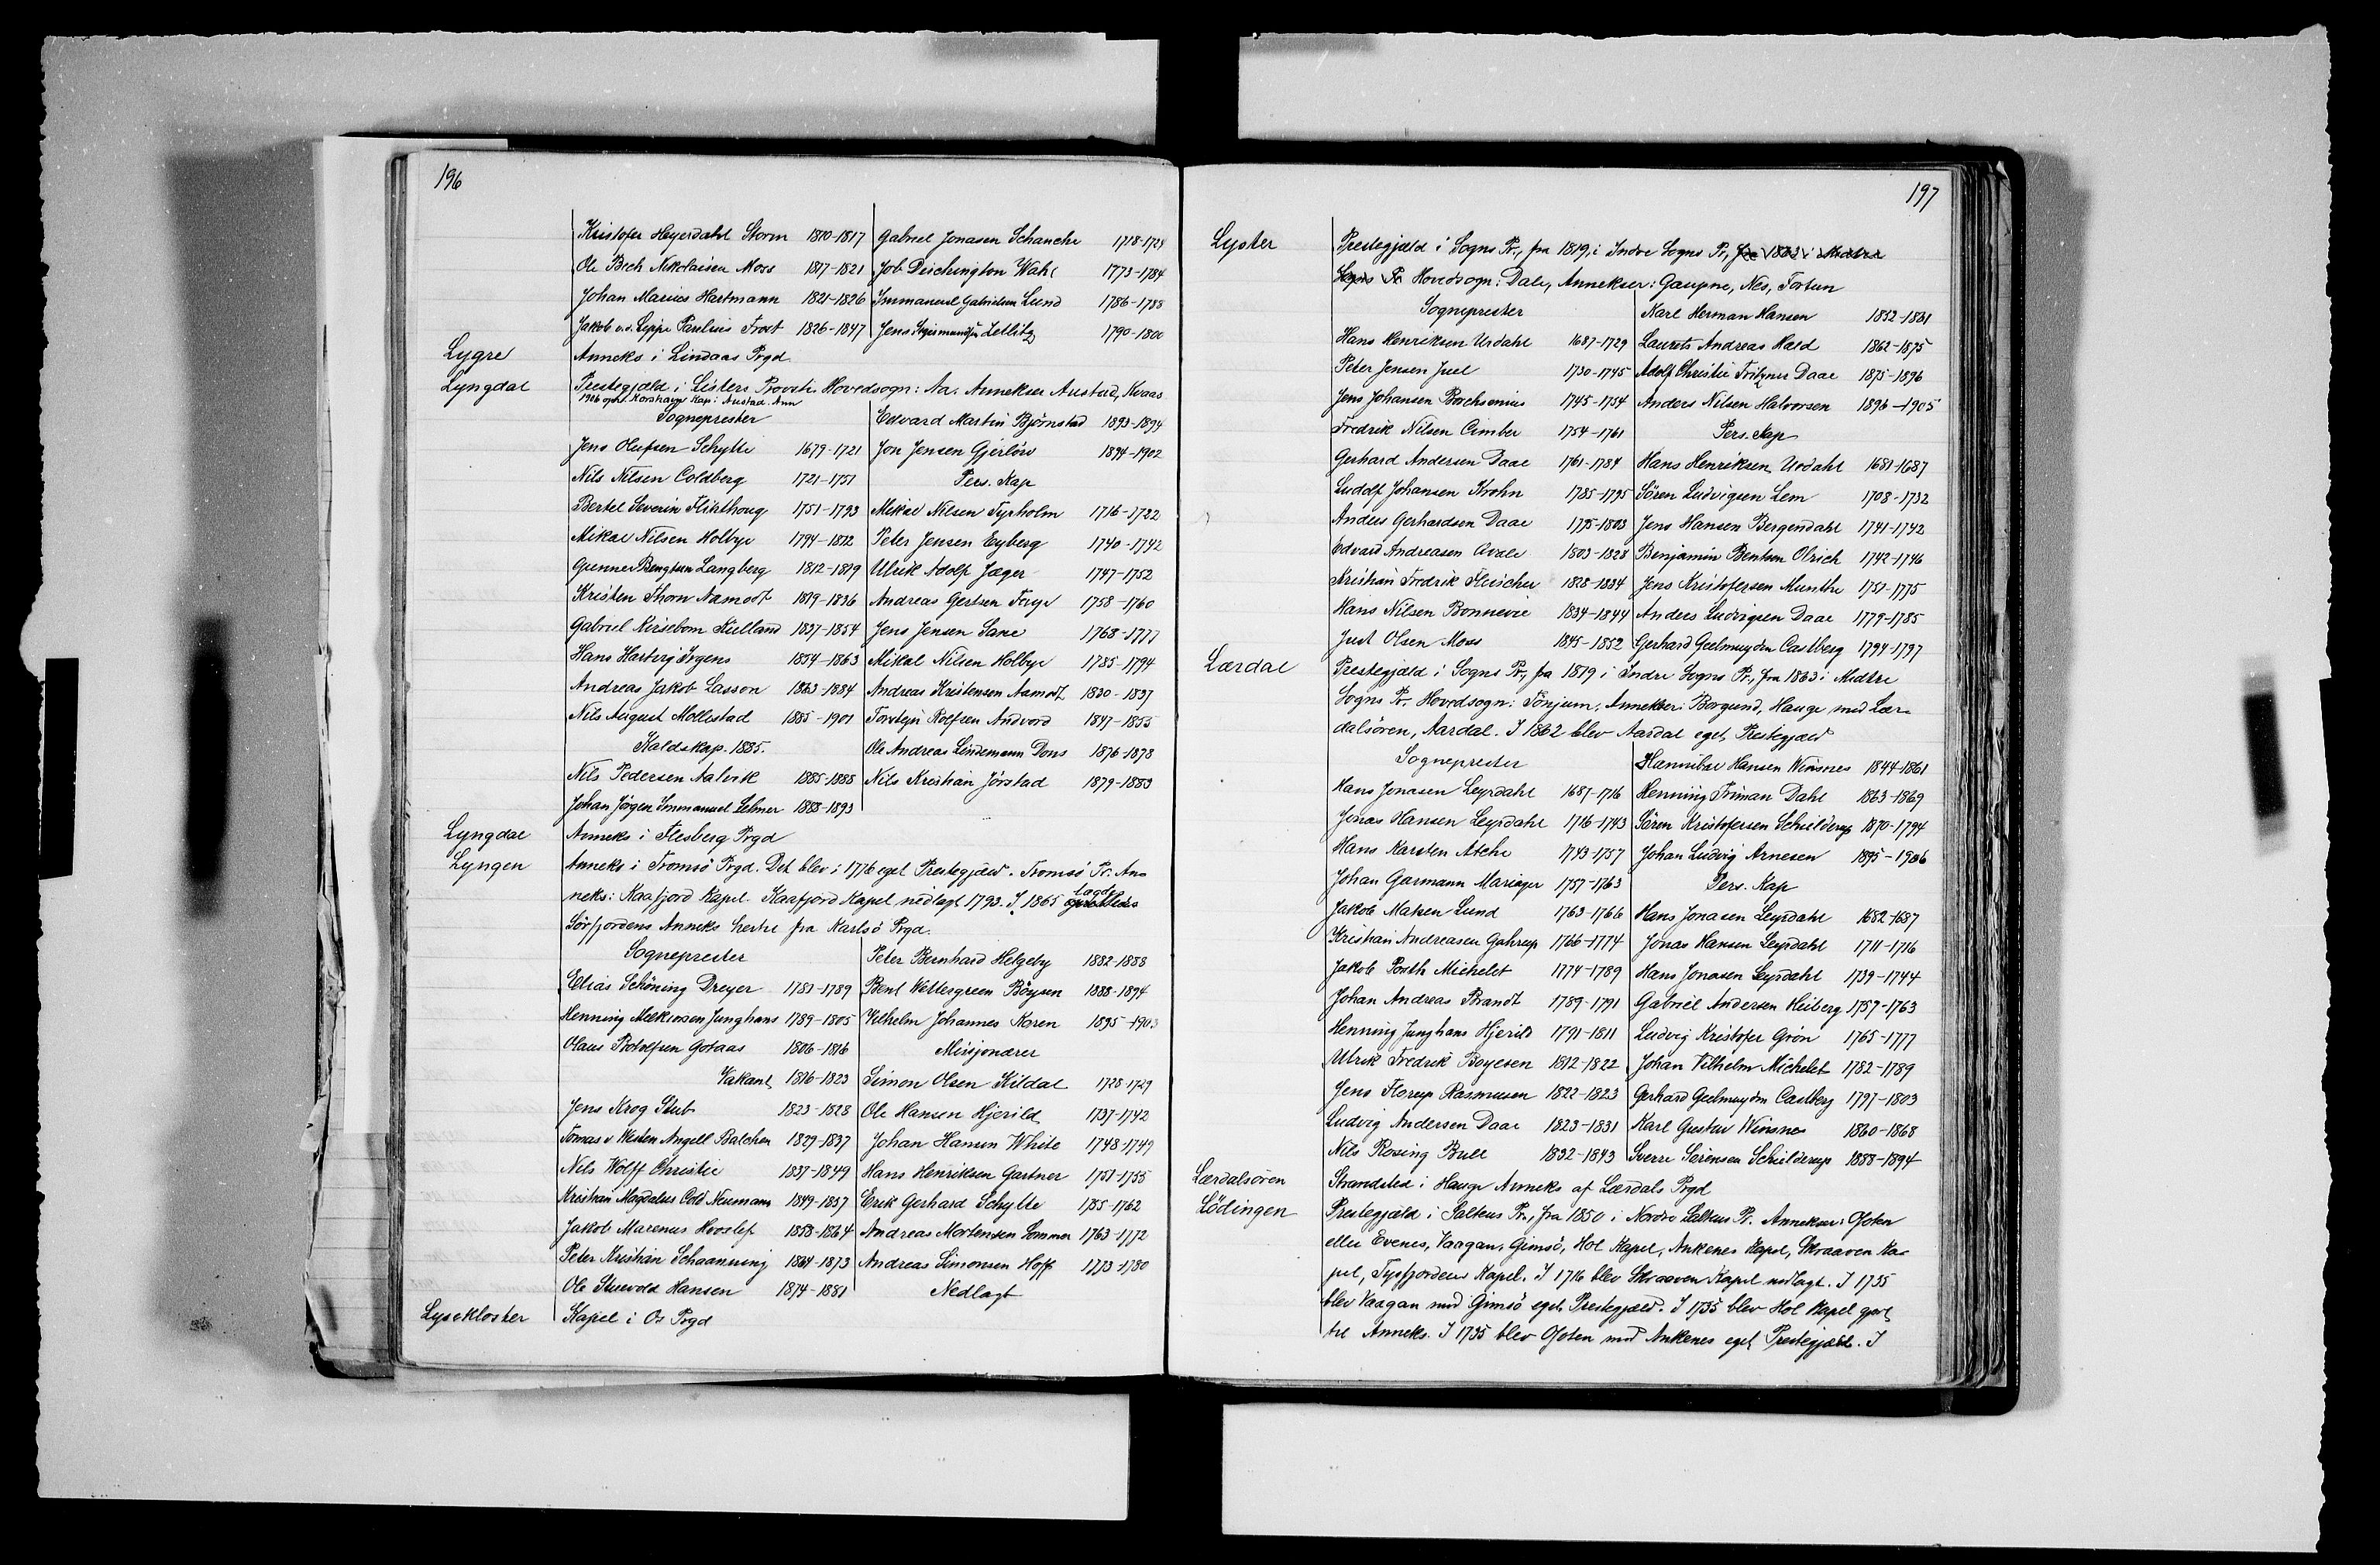 196
Kristofer Heyerdahl Storm 1810-1817 Gabriel Jonasen Schanche 1718-1724
Ole Bech Nikolaisen Moss 1817-1821 Job Dischington Wahl 1773-1784
Johan Marius Hartmann 1821-1826 Immanuel Gabrielsen Lund 1786-1788
Jakob v.d. Lippe Paulius Frost 1826-1847 Jens Sigismundsen Zetlitz 1790-1800
Lygre Anneks i Lindaas Prgd
Lyngdal Prestegjæld i Listers Provsti Hovedsogn: Aa. Annekser Austad, Kvaas
1906 opht. Korshavn Kap. i Austad Ann
Sogneprester Edvard Martin Björnstad 1893-1894
Jens Olufsen Schytte 1679-1721 Jon Jensen Gjerløw 1894-1902
Nils Nilsen Coldberg 1721-1751 Pers. Kap
Bertel Severin Flinthoug 1751-1793 Mikal Nilsen Tyrholm 1716-1722
Mikal Nilsen Holbye 1794-1812 Peter Jensen Eyberg 1740-1742
Gunner Bengtsen Langberg 1812-1819 Ulrik Adolf Jæger 1747-1752
Kristen Thorn Aamodt 1819-1836 Andreas Gertsen Foyn 1758-1760
Gabriel Kirsebom Kielland 1837-1854 Jens Jensen Sane 1768-1777
Hans Hartvig Irgens 1854-1863 Mikal Nilsen Holbye 1785-1794
Andreas Jakob Lasson 1863-1884 Andreas Kristensen Aamodt 1830-1837
Nils August Mollestad 1885-1901 Torstein Rolfsen Andvord 1847-1855
Kaldskap. 1885. Ole Andreas Lindemann Dons 1876-1878
Nils Pedersen Aalvik 1885-1888 Nils Kristian Jörstad 1879-1883
Johan Jörgen Immanuel Selmer 1888-1893
Lyngdal Anneks i Flesberg Prgd
Lyngen Anneks i Tromsö Prgd. Det blev i 1776 eget Prestegjæld. Tromsö Pr. An-
neks: Kaafjord Kapel. Kaafjord Kapel nedlagt 1793. I 1865 lagdes
Sörfjordens Anneks hertil fra Karlsö Prgd.
Sogneprester Peter Bernhard Helgeby 1882-1888
Elias Schöning Dreyer 1781-1789 Bent Wettergreen Böysen 1888-1894
Henning Melkiorsen Junghans 1789-1805 Vilhelm Johannes Koren 1895-1903
Olaus Rotolfsen Gotaas 1806-1816 Missjonærer
Vakant 1816-1823 Simon Olsen Kildal 1728-1729
Jens Krog Stub 1823-1828 Ole Hansen Hjerild 1737-1742
Tomas v Westen Angell Balchen 1829-1837 Johan Hansen White 1748-1749
Nils Wolff Christie 1837-1849 Hans Henriksen Gartner 1751-1755
Kristian Magdalus Cold Neumann 1849-1857 Erik Gerhard Schytte 1755-1762
Jakob Marenus Hvoslef 1858-1864 Andreas Mortensen Sommer 1763-1772
Peter Kristian Schaanning 1864-1873 Andreas Simonsen Hoff 1773-1780
Ole Stuevold Hansen 1874-1881 Nedlagt
Lysekloster Kapel i Os Prgd
197
Lyster Prestegjæld i Sogns Pr., fra 1819 i Indre Sogns Pr, fra 1863 i Midtre
Sogns Pr Hovedsogn: Dale, Annekser: Gaupne, Nes, Fortun
Sogneprester Karl Herman Hansen 1852-1861
Hans Henriksen Urdahl 1687-1729 Laurits Andreas Hald 1862-1875
Peter Jensen Juel 1730-1745 Adolf Christie Fritzner Daae 1875-1896
Jens Johansen Borchsenius 1745-1754 Anders Nilsen Halvorsen 1896-1905
Fredrik Nilsen Comber 1754-1761 Pers. Kap
Gerhard Andersen Daae 1761-1784 Hans Henriksen Urdahl 1681-1687
Ludolf Johansen Krohn 1785-1795 Sören Ludvigsen Lem 1708-1732
Anders Gerhardsen Daae 1795-1803 Jens Hansen Bergendahl 1741-1742
Edvard Andreasen Quale 1803-1828 Benjamin Bentsen Olrich 1742-1746
Kristian Fredrik Fleischer 1828-1834 Jens Kristofersen Munthe 1751-1775
Hans Nilsen Bonnevie 1834-1844 Anders Ludvigsen Daae 1779-1785
Just Olsen Moss 1845-1852 Gerhard Geelmuyden Castberg 1794-1797
Lærdal Prestegjæld i Sogns Pr., fra 1819 i Indre Sogns Pr., fra 1863 i Midtre
Sogns Pr. Hovedsogn: Tönjum, Annekser: Borgund, Hauge med Lær-
dalsören, Aardal. I 1862 blev Aardal eget Prestegjæld
Sogneprester Hannibal Hansen Winsnes 1844-1861
Hans Jonasen Leyrdahl 1687-1716 Henning Friman Dahl 1863-1869
Jonas Hansen Leyrdahl 1716-1743 Sören Kristofersen Schielderup 1870-1794
Hans Karsten Atche 1743-1757 Johan Ludvig Arnesen 1895-1906
Johan Garmann Mariager 1757-1763 Pers. Kap
Jakob Matsen Lund 1763-1766 Hans Jonasen Leyrdahl 1682-1687
Kristian Andreasen Gahrup 1766-1774 Jonas Hansen Leyrdahl 1711-1716
Jakob Porth Michelet 1774-1789 Hans Jonasen Leyrdahl 1739-1744
Johan Andreas Brandt 1789-1791 Gabriel Andersen Heiberg 1757-1763
Henning Junghans Hjerild 1791-1811 Ludvig Kristofer Grön 1765-1777
Ulrik Fredrik Boyesen 1812-1822 Johan Vilhelm Michelet 1782-1789
Jens Florup Rasmusen 1822-1823 Gerhard Geelmuyden Castberg 1797-1803
Ludvig Andersen Daae 1823-1831 Karl Gustav Winsnes 1860-1868
Nils Rosing Bull 1832-1843 Sverre Sörensen Schielderup 1888-1894
Lærdalsören Strandsted i Hauge Anneks af Lærdals Prgd
Lödingen Prestegjæld i Saltens Pr., fra 1850 i Nordre Saltens Pr. Annekser: Ofoten
eller Evenes, Vaagan, Gimsö, Hol Kapel, Ankenes Kapel, Skraaven Ka-
pel, Tysfjordens Kapel. I 1716 blev Skraaven Kapel nedlagt. I 1735
blev Vaagan med Gimsö eget Prestegjæld. I 1735 blev Hol Kapel gjort
til Anneks. I 1735 blev Ofoten med Ankenes eget Prestegjæld. I